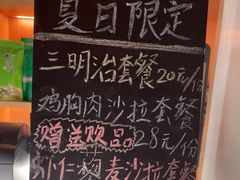 夏日限定
三明治套餐20元/份
鸡胸肉沙拉套餐
赠益饮品 28元/份
虾仁杨麦沙拉套餐